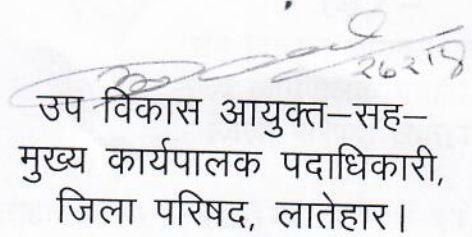 26218
उप विकास आयुक्त–सह–
मुख्य कार्यपालक पदाधिकारी,
जिला परिषद, लातेहार।